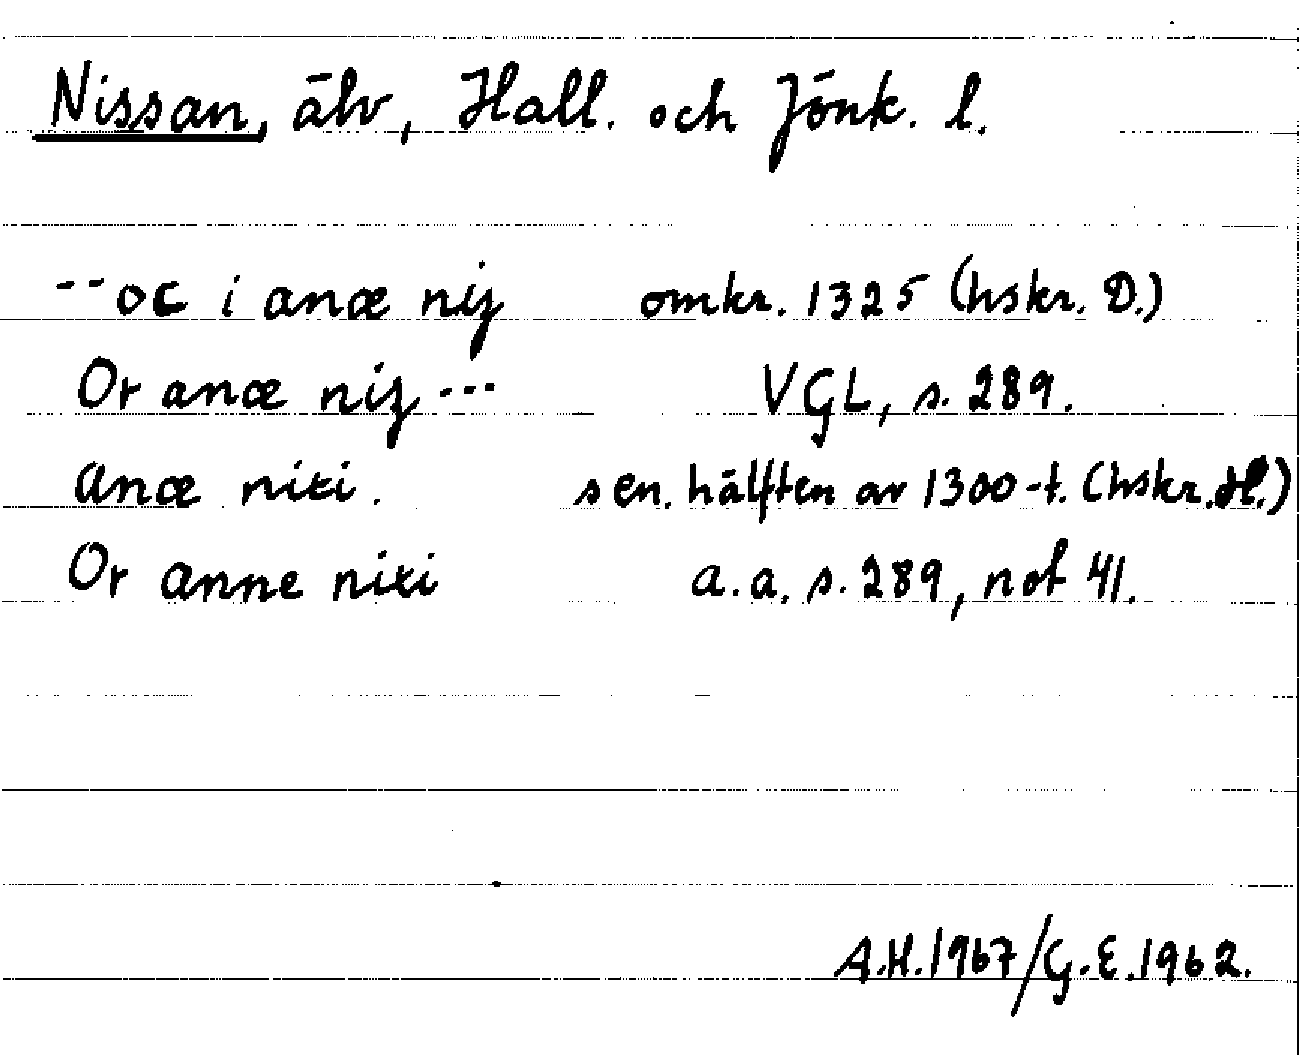 Nissan, älv, Hall. och Jönk. l.
--oc i anæ niz omkr. 1325 (hskr. D.)
Or anæ niz --- VGL, s. 289.
anæ niti. sen. hälften av 1300-t. (hskr. H.)
Or anne niti a. a. s. 289, not 41.
A.H. 1967/G.E. 1962.